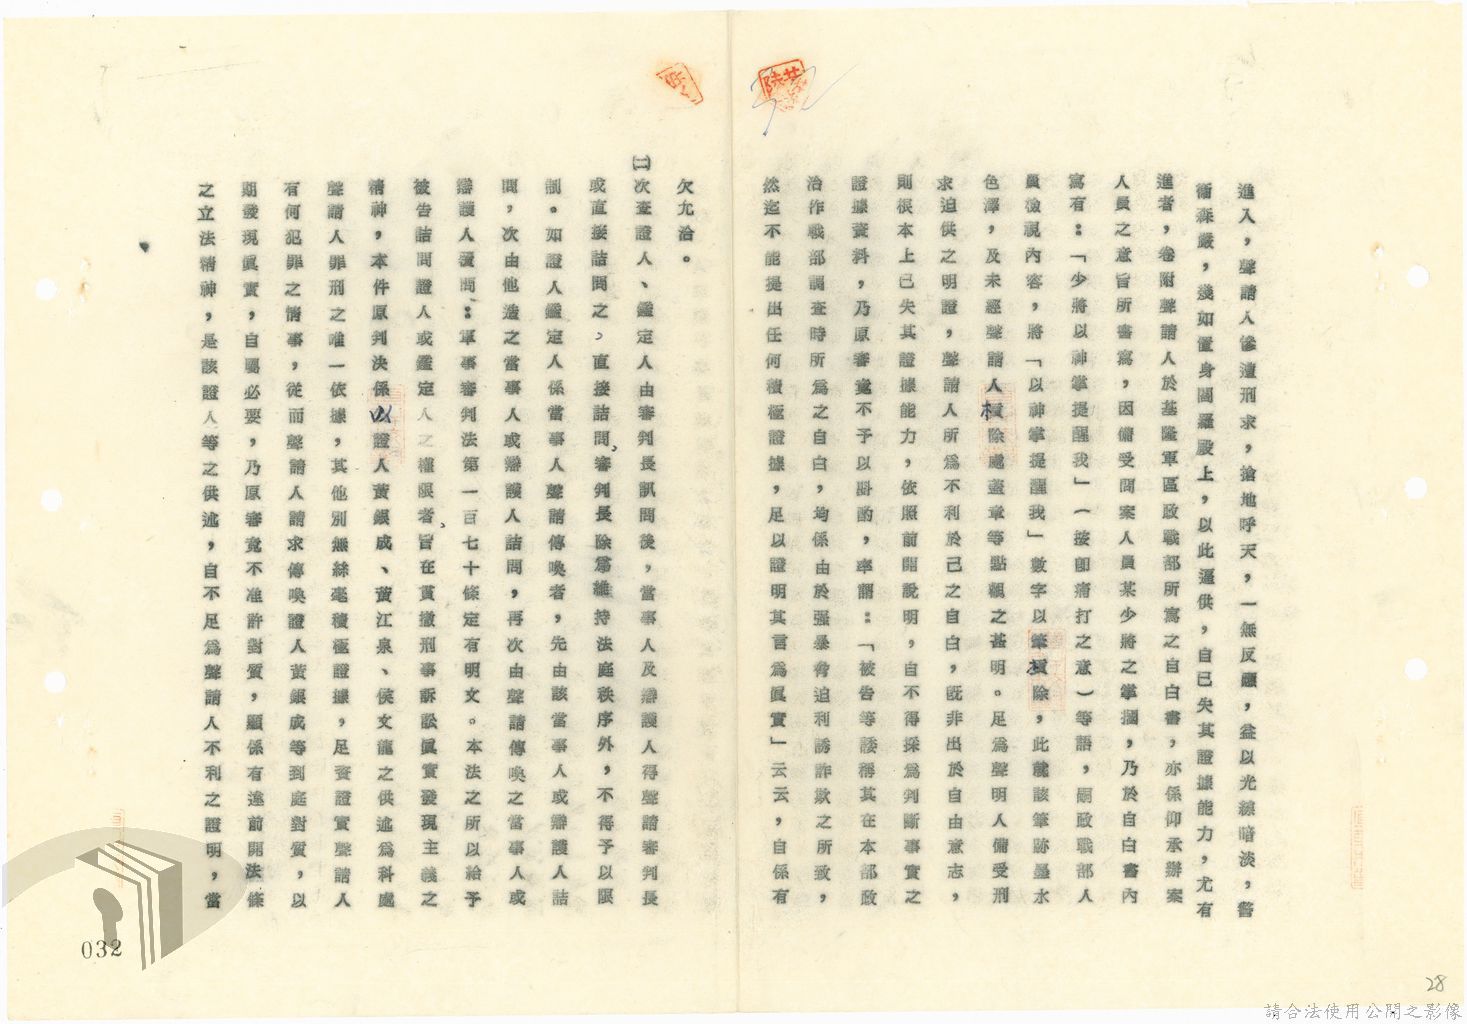 進入，聲請人慘遭刑求，搶地呼天，一無反應，益以光線暗淡，警
衞森嚴，淺如置身閻羅殿上，以此逼供，自已失其證據能力，尤有
進者，卷附聲請人於基隆軍區政戰部所寫之自白書，亦係仰承辦案
人員之意旨所書寫，因備受問案人員某少將之掌摑，乃於自白書內
寫有：「少將以神掌提醒我」（按卽痛打之意）等語，嗣政戰部人
員檢視內容，將「以神掌提醒我」數字以筆槓除，此就該筆跡墨水
色澤，及未經聲請人槓除處蓋章等點觀之甚明。足爲聲明人備受刑
求迫供之明證，聲請人所爲不利於己之自白，旣非出於自由意志，
則根本上已失其證據能力，依照前開說明，自不得採爲判斷事實之
證據資料，乃原審竟不予以斟酌，率謂：「被告等諉稱其在本部政
治作戰部調查時所爲之自白，均係由於强暴脅迫利誘詐欺之所致，
然迄不能提出任何積極證據，足以證明其言爲眞實」云云，自係有
欠允洽。
㈡次查證人、鑑定人由審判長訊問後，當事人及辯護人得聲請審判長
或直接詰問之，直接詰問，審判長除爲維持法庭秩序外，不得予以限
制。如證人鑑定人係當事人聲請傳喚者，先由該當事人或辯護人詰
問，次由他造之當事人或辯護人詰問，再次由聲請傳喚之當事人或
辯護人覆問：軍事審判法第一百七十條定有明文。本法之所以給予
被告詰問證人或鑑定人之權限者，旨在貫徹刑事訴訟眞實發現主義之
精神，本件原判決係以證人黃銀成、黃江泉、侯文龍之供述爲科處
聲請人罪刑之唯一依據，其他別無絲毫積極證據，足資證實聲請人
有何犯罪之情事，從而聲請人請求傳喚證人黃銀成等到庭對質，以
期發現眞實，自屬必要，乃原審竟不准許對質，顯係有違前開法條
之立法精神，是該證人等之供述，自不足爲聲請人不利之證明，當
032
28
請合法使用公開之影像